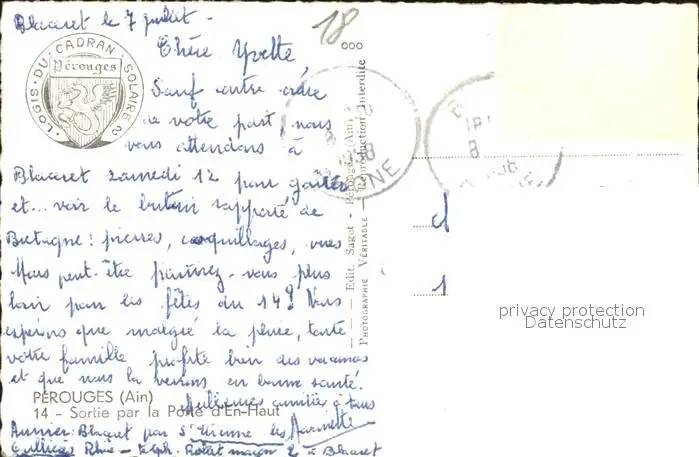 Blaceret le 7 juillet -
18
Chère Yvette,
LOGIS · DU · CADRAN SOLAIRE
Pérouges
Sauf contre ordre
de votre part, nous
vous attendons à
Blaceret samedi 12 pour goûter
et... voir le butin rapporté de
Bretagne : pierres, coquillages, vues
Mais peut-être partirez-vous plus
loin pour les fêtes du 14? Nous
espérons que malgré la pluie, toute
votre famille profite bien des vacances
et que nous la verrons en bonne santé.
Meilleures amitiés à tous
PÉROUGES (Ain)
14 - Sortie par la Porte d'En-Haut
Blaceret par St Etienne les
Rhône - Teleph. 2 à Blaceret
Edit. Sagot - Pérouges (Ain)
Reproduction Interdite
PHOTOGRAPHIE VÉRITABLE
privacy protection
Datenschutz